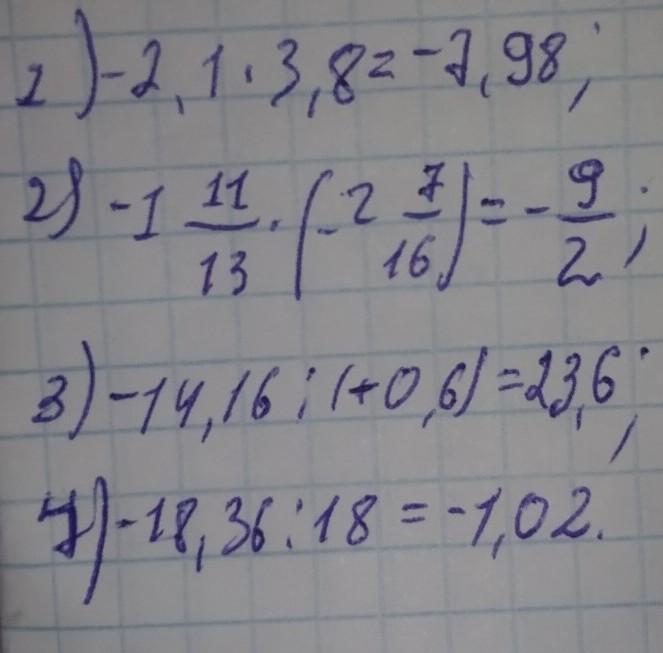 1) -2,1 · 3,8 = -7,98;
2) -1 11/13 · (-2 7/16) = -9/2;
3) -14,16 : (+0,6) = 23,6;
4) -18,36 : 18 = -1,02.